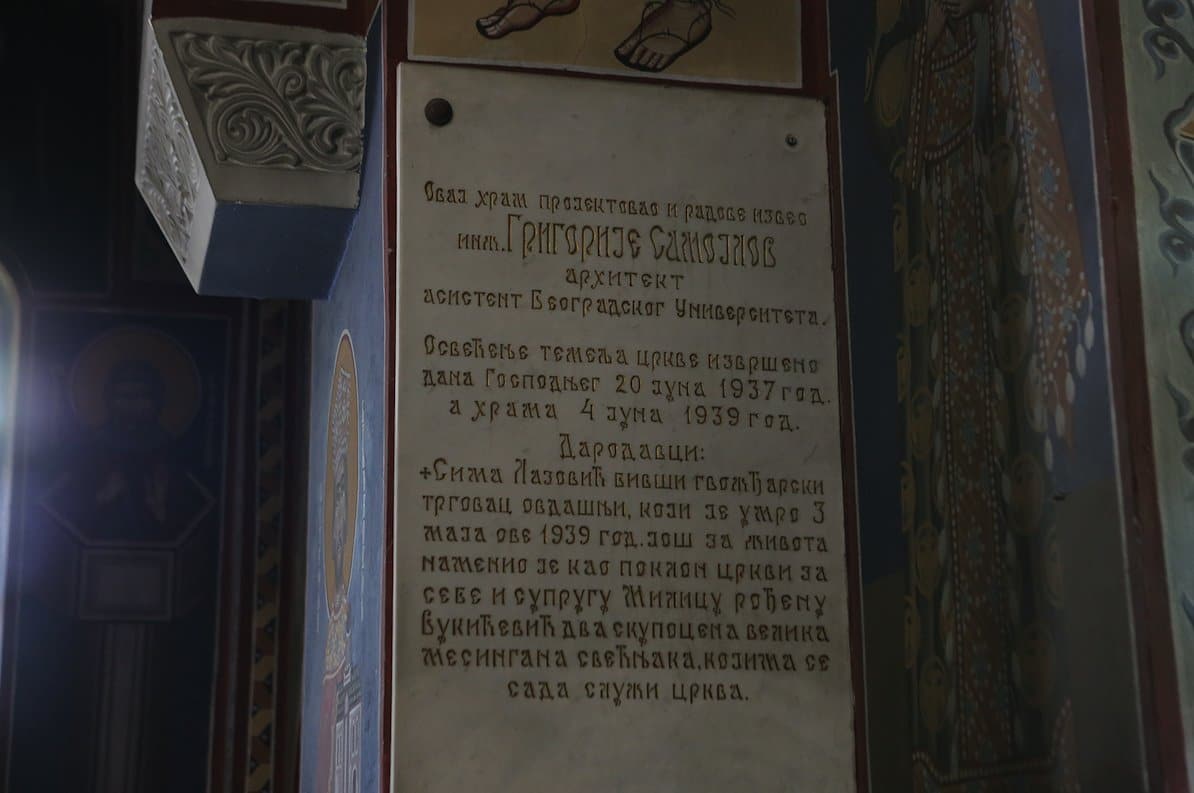 Овај храм пројектовао и радове извео
инж. Григорије Самојлов
архитект
асистент Београдског Универзитета.
Освећење темеља цркве извршено
дана Господњег 20 јуна 1937 год.
а храма 4 јуна 1939 год.
Дародавци:
+Сима Лазовић бивши гвожђарски
трговац овдашњи, који је умро 3
маја ове 1939 год. још за живота
наменио је као поклон цркви за
себе и супругу Милицу рођену
Вукићевић два скупоцена велика
месингана свећњака, којима се
сада служи црква.